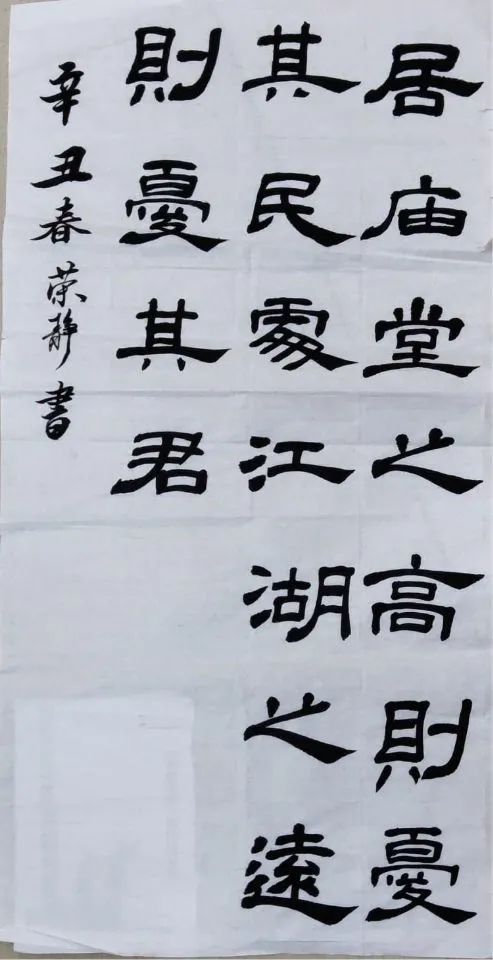 居庙堂之高則憂
其民處江湖之遠
則憂其君
辛丑春荣静書